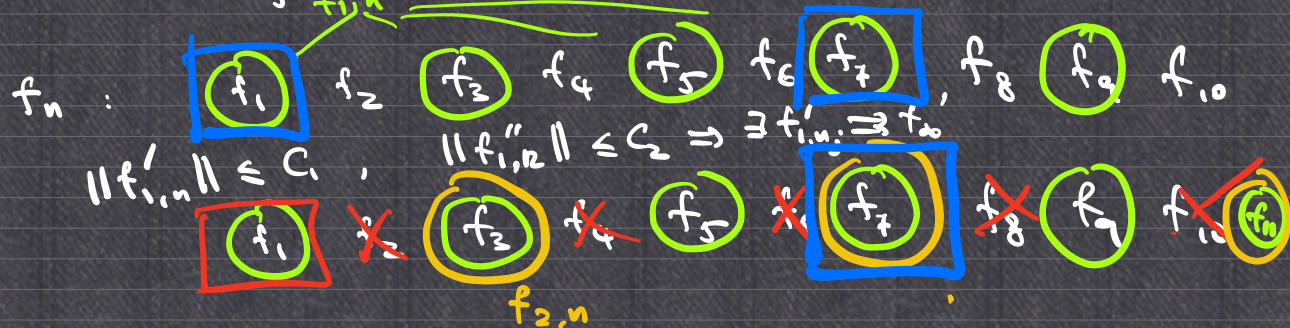 f₁,ₙ
fₙ : f₁ f₂ f₃ f₄ f₅ f₆ f₇ , f₈ f₉ f₁₀
‖f′₁,ₙ‖ ≤ C₁ , ‖f″₁,ₙ‖ ≤ C₂ ⇒ ∃ f′₁,ₙⱼ ⇉ f∞
f₁ f₂ f₃ f₄ f₅ f₆ f₇ f₈ f₉ f₁₀ f₁₁
f₂,ₙ